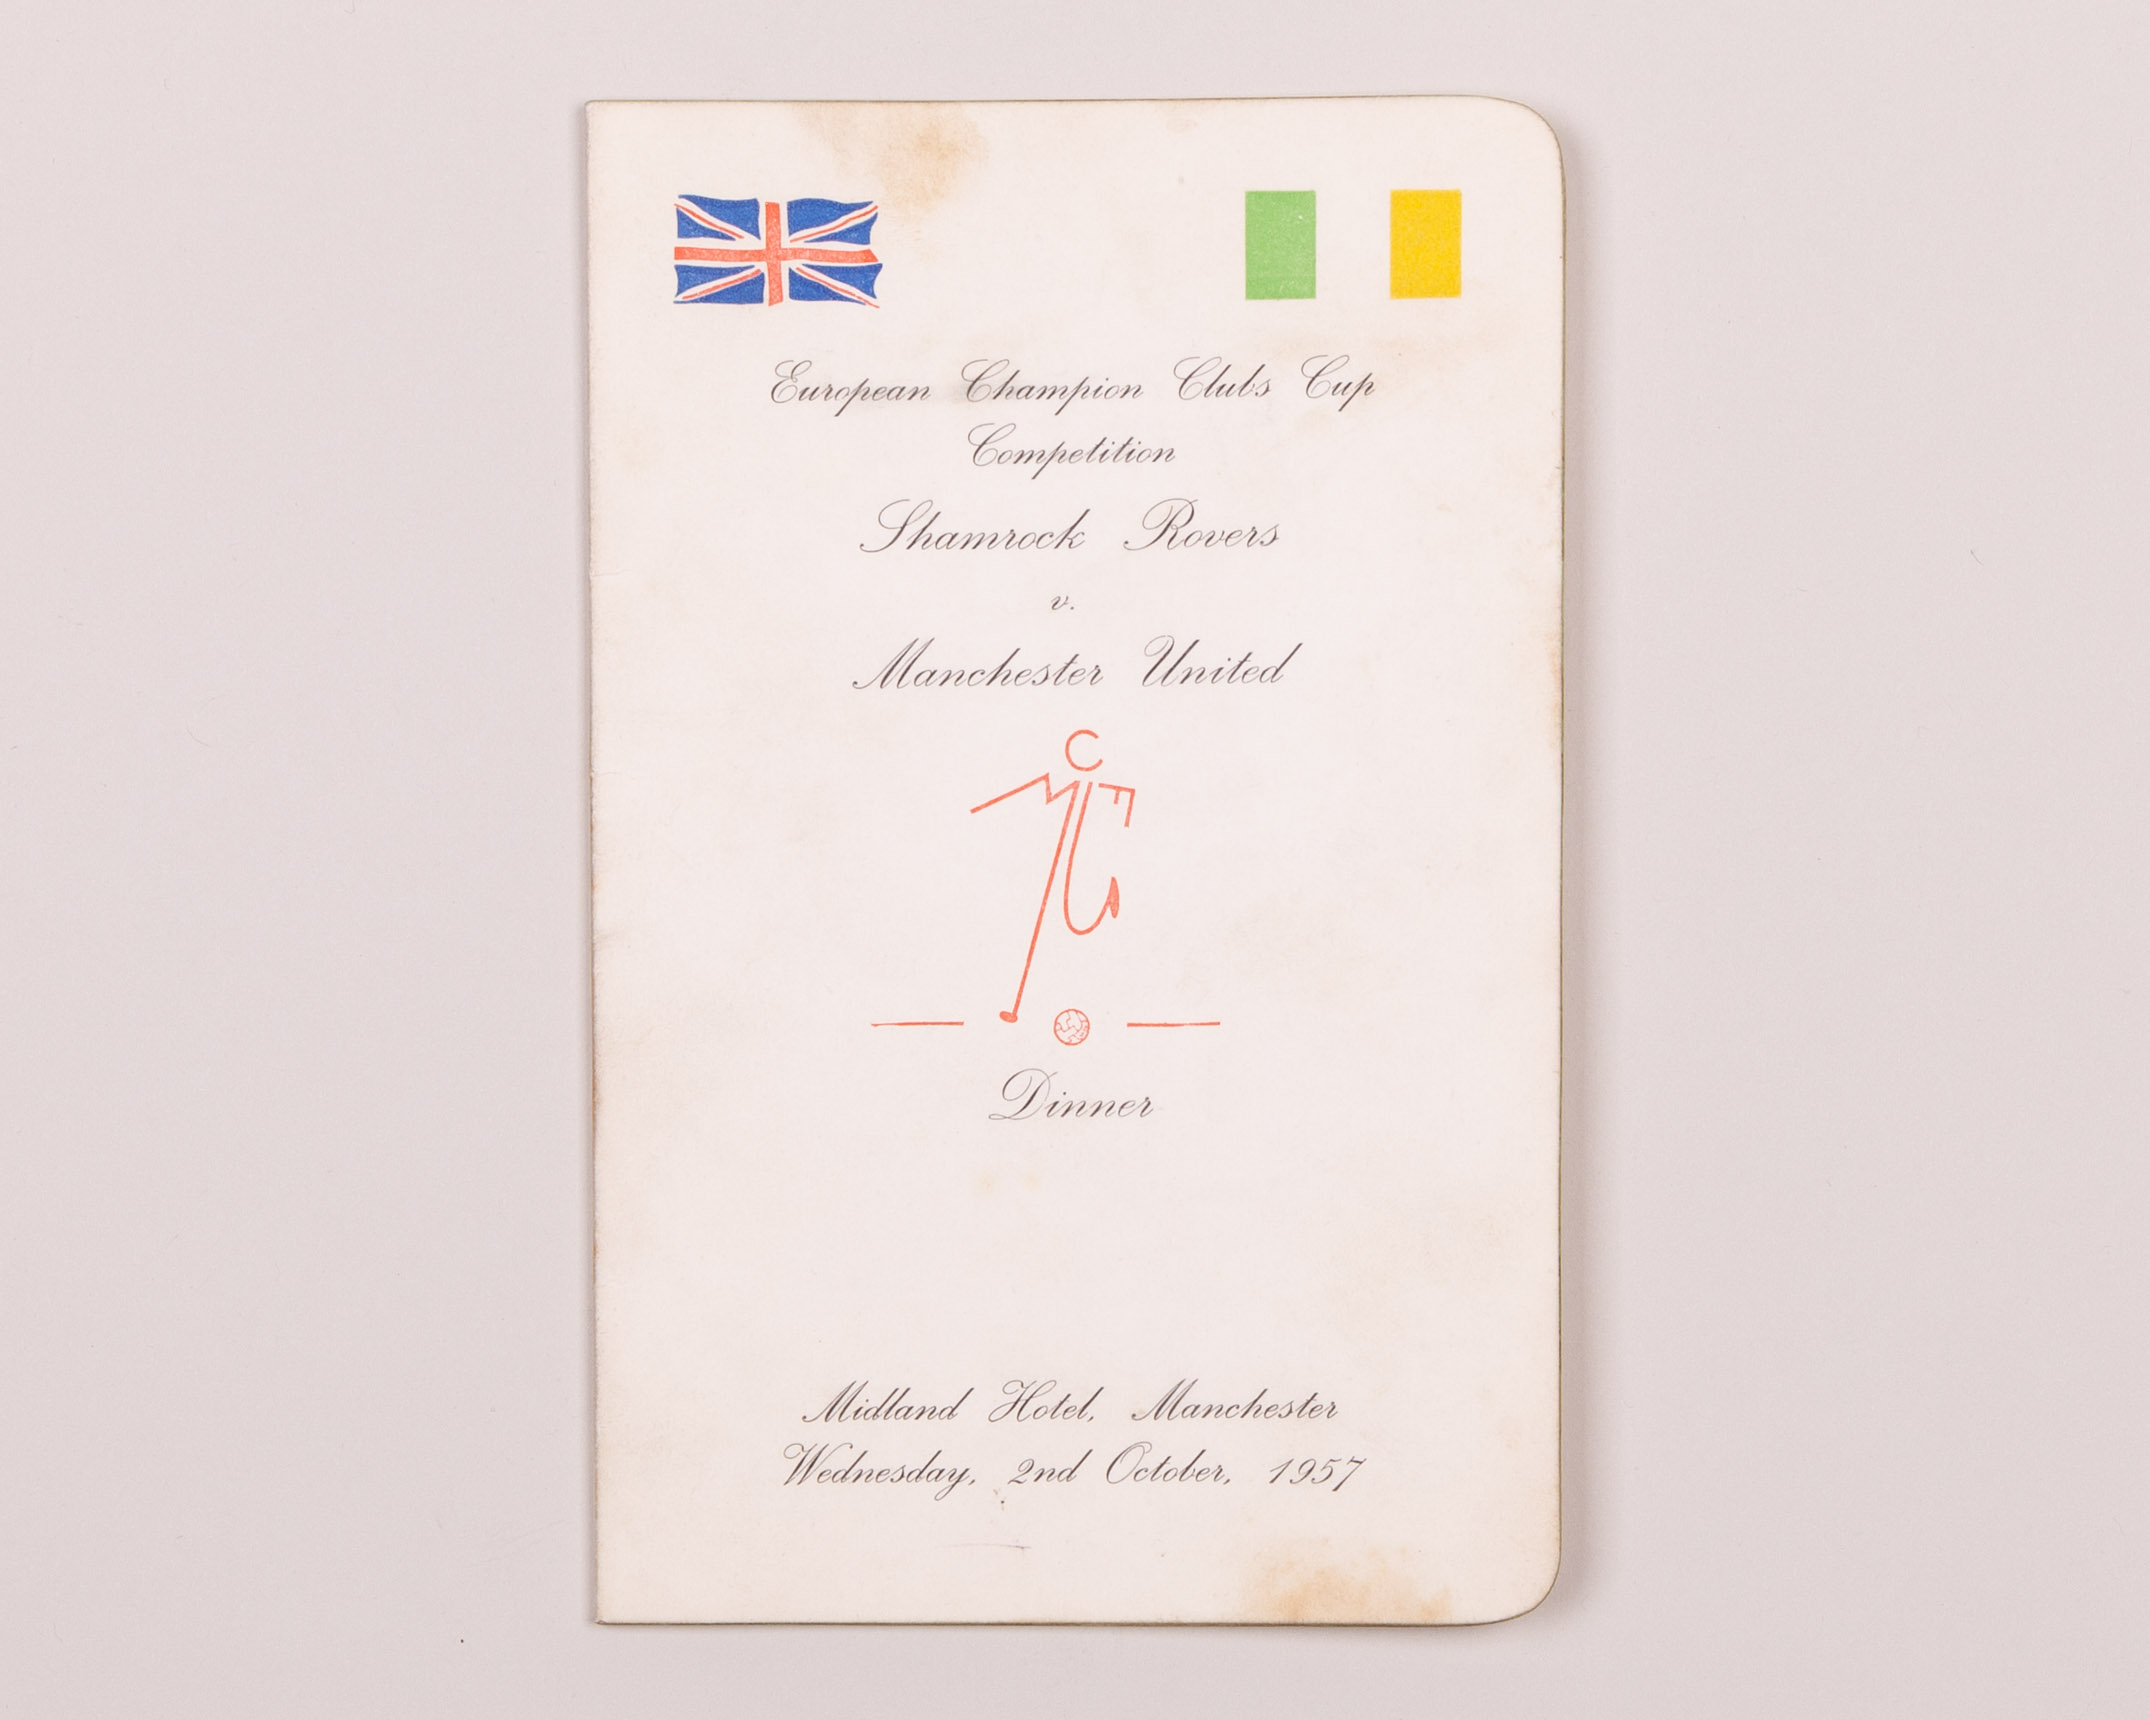 European Champion Clubs Cup
Competition
Shamrock Rovers
v.
Manchester United
C
M U F
Dinner
Midland Hotel, Manchester
Wednesday, 2nd October, 1957